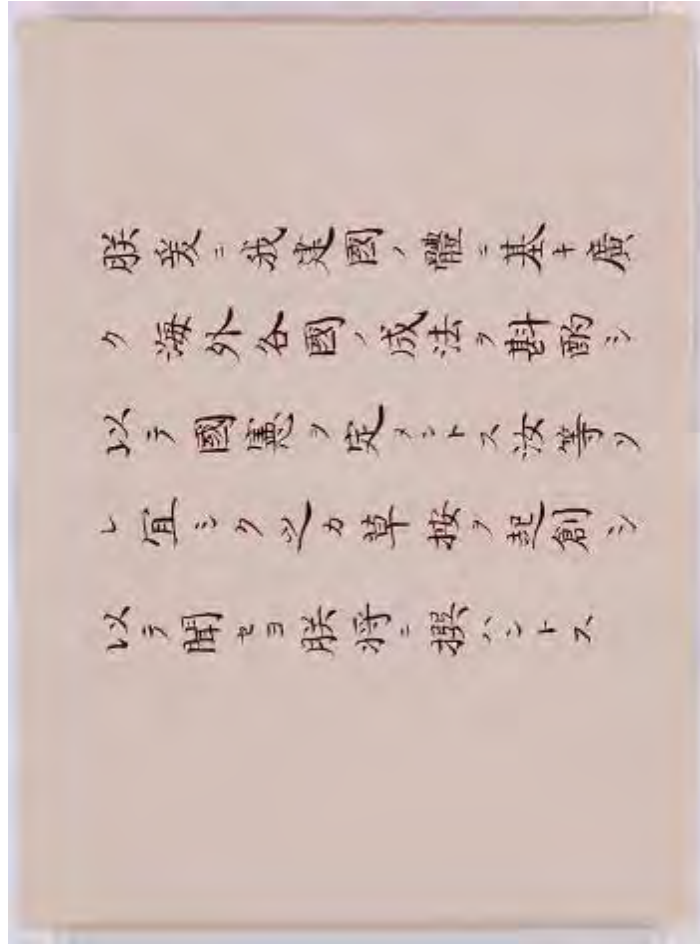 朕爰ニ我建國ノ體ニ基キ廣
ク海外各國ノ成法ヲ斟酌シ
以テ國憲ヲ定メントス汝等ソ
レ宜シク之カ草按ヲ起創シ
以テ聞セヨ朕将ニ撰ハントス